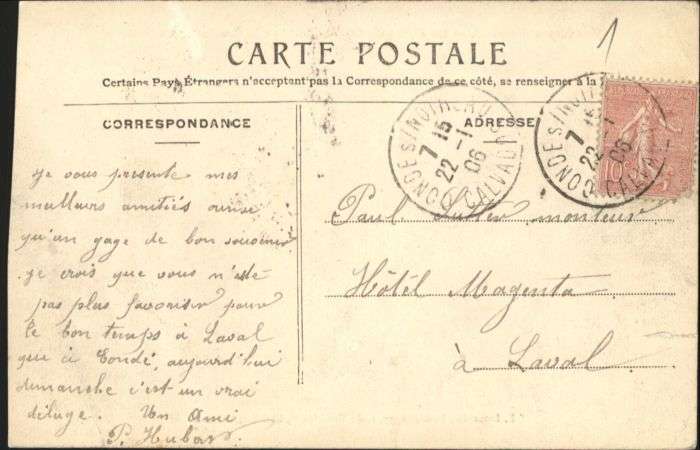 1
CARTE POSTALE
Certains Pays Étrangers n'acceptent pas la Correspondance de ce côté, se renseigner à la
CORRESPONDANCE
Je vous presente mes
meilleurs amitiés ainsi
qu'un gage de bon souvenir
je crois que vous n'ête
pas plus favoriser pour
le bon temps à Laval
que à Condé, aujourd'hui
dimanche c'est un vrai
déluge. Un Ami
P. Hubar
ADRESSE
Paul Sutter monteur
Hôtel Magenta
à Laval
CONDÉ S/NOIREAU CALVADOS
7 15
22 - 1
06
CONDÉ S/NOI CALVA
7 15
22 - 1
06
10